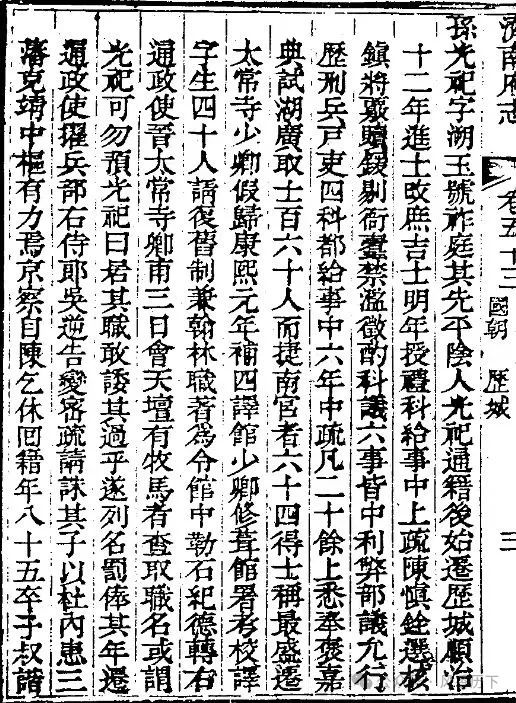 濟南府志 卷五十三 國朝 歷城 三
孫光祀字溯玉號祚庭其先平陰人光祀通籍後始遷歷城順治
十二年進士改庶吉士明年授禮科給事中上疏陳慎銓選核
鎮將嚴贖鍰剔衙蠹禁濫徵酌科議六事皆中利弊部議允行
歷刑兵戸吏四科都給事中六年中疏凡二十餘上悉奉褒嘉
典試湖廣取士百六十人而捷南宮者六十四得士稱最盛遷
太常寺少卿假歸康熙元年補四譯館少卿修葺館署考校譯
字生四十人請復舊制兼翰林職著爲令館中勒石紀德轉右
通政使晉太常寺卿甫三日會天壇有牧馬者查取職名或謂
光祀可勿預光祀曰居其職敢諉其過乎遂列名罰俸其年遷
通政使擢兵部右侍郎吳逆告變密疏請誅其子以杜內患三
藩克靖中樞有力焉京察自陳乞休回籍年八十五卒子叔詣